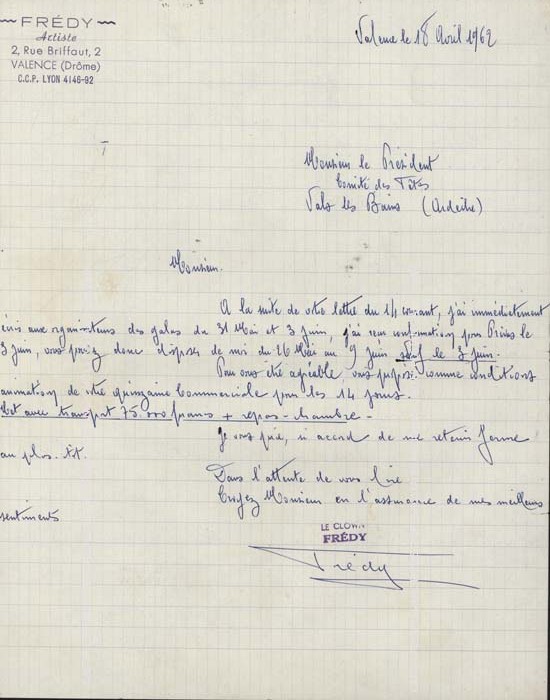 FRÉDY
Artiste
2, Rue Briffaut, 2
VALENCE (Drôme)
C.C.P. LYON 4146-92
Valence le 18 Avril 1962
Monsieur le Président
Comité des Fêtes
Vals les Bains (Ardèche)
Monsieur.
A la suite de votre lettre du 14 courant, j'ai immédiatement
écris aux organisateurs des galas du 31 Mai et 3 juin, j'ai reçu confirmation pour Privas le
3 juin, vous pouvez donc disposer de moi du 26 Mai au 9 juin sauf le 3 juin.
Pour vous être agréable, vous propose comme conditions
animation de votre quinzaine Commerciale pour les 14 jours.
avec transport 75.000 francs + repas - chambre -
Je vous prie, si accord de me retenir ferme
au plus tôt.
Dans l'attente de vous lire
Croyez Monsieur en l'assurance de mes meilleurs
sentiments
LE CLOWN
FRÉDY
Frédy